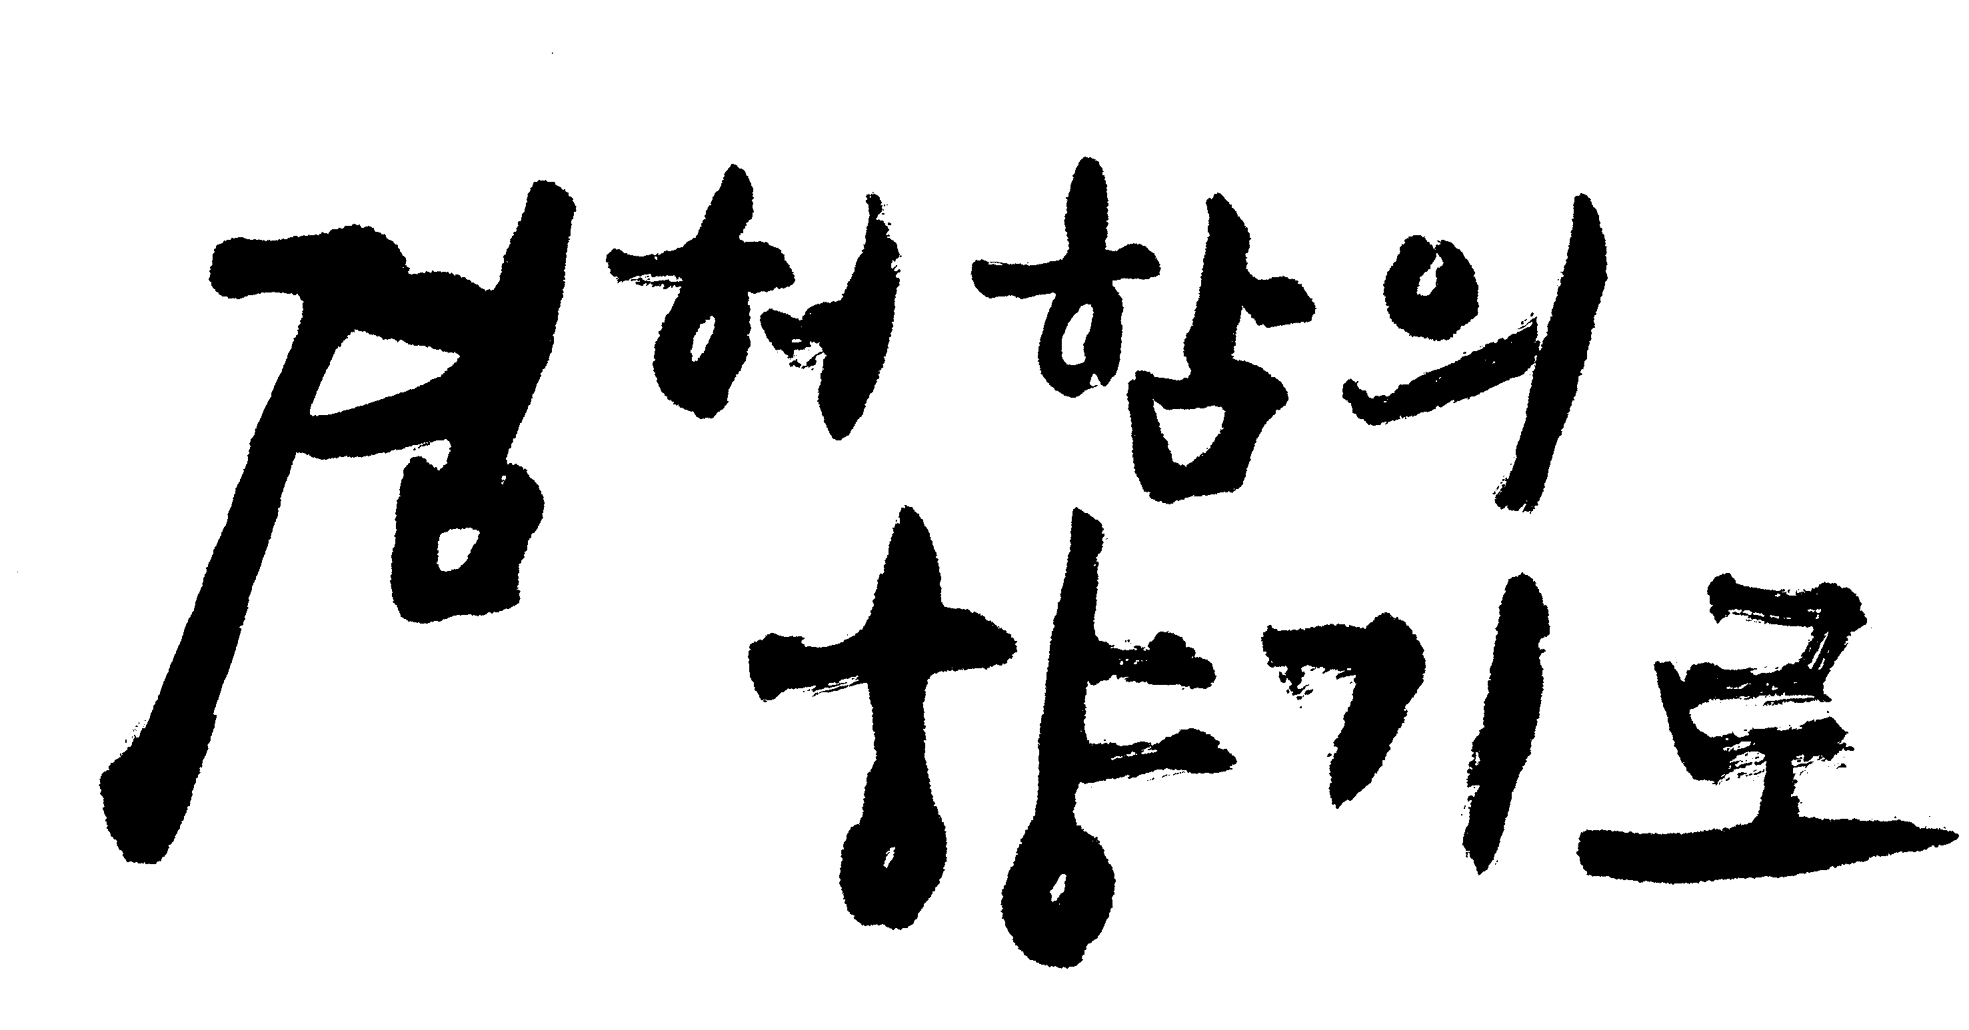 겸허함의
향기로